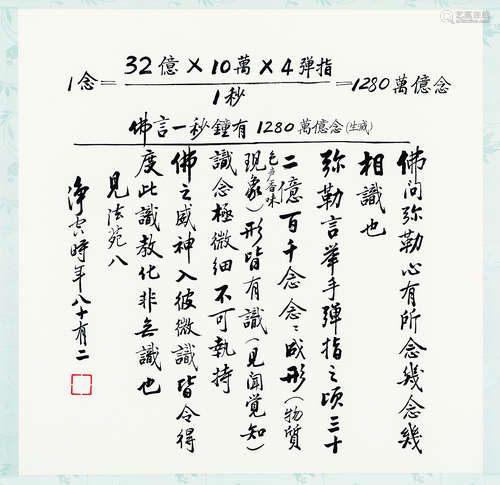 1念=32億×10萬×4彈指/1秒=1280萬億念
佛言一秒鐘有1280萬億念(生滅)
佛問弥勒心有所念幾念幾
相識也
弥勒言舉手彈指之頃三十
二億百千念念〻成形(物質
色声香味
現象)形皆有識(見聞覺知)
識念極微細不可執持
佛之威神入彼微識皆令得
度此識教化非無識也
見法苑八
淨空時年八十有二